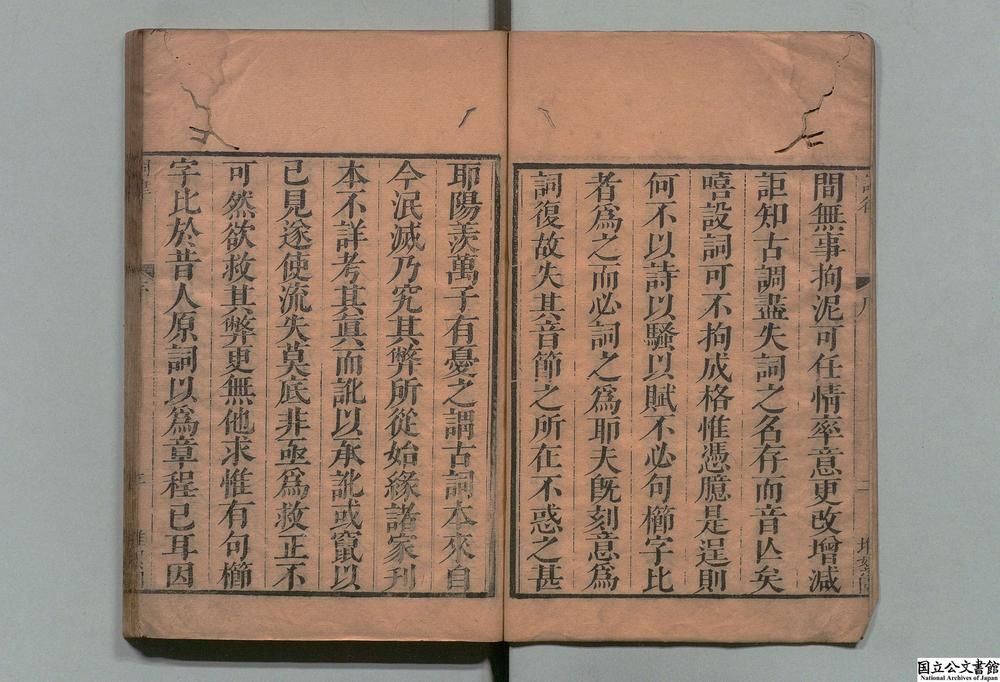 間無事拘泥可任情率意更改增減
詎知古調盡失詞之名存而音亾矣
嘻設詞可不拘成格惟憑臆是逞則
何不以詩以騷以賦不必句櫛字比
者爲之而必詞之爲耶夫旣刻意爲
詞復故失其音節之所在不惑之甚
耶陽羨萬子有憂之謂古詞本來自
今泯滅乃究其弊所從始緣諸家刋
本不詳考其眞而訛以承訛或竄以
己見遂使流失莫底非亟爲救正不
可然欲救其弊更無他求惟有句櫛
字比於昔人原詞以爲章程已耳因
国立公文書館
National Archives of Japan